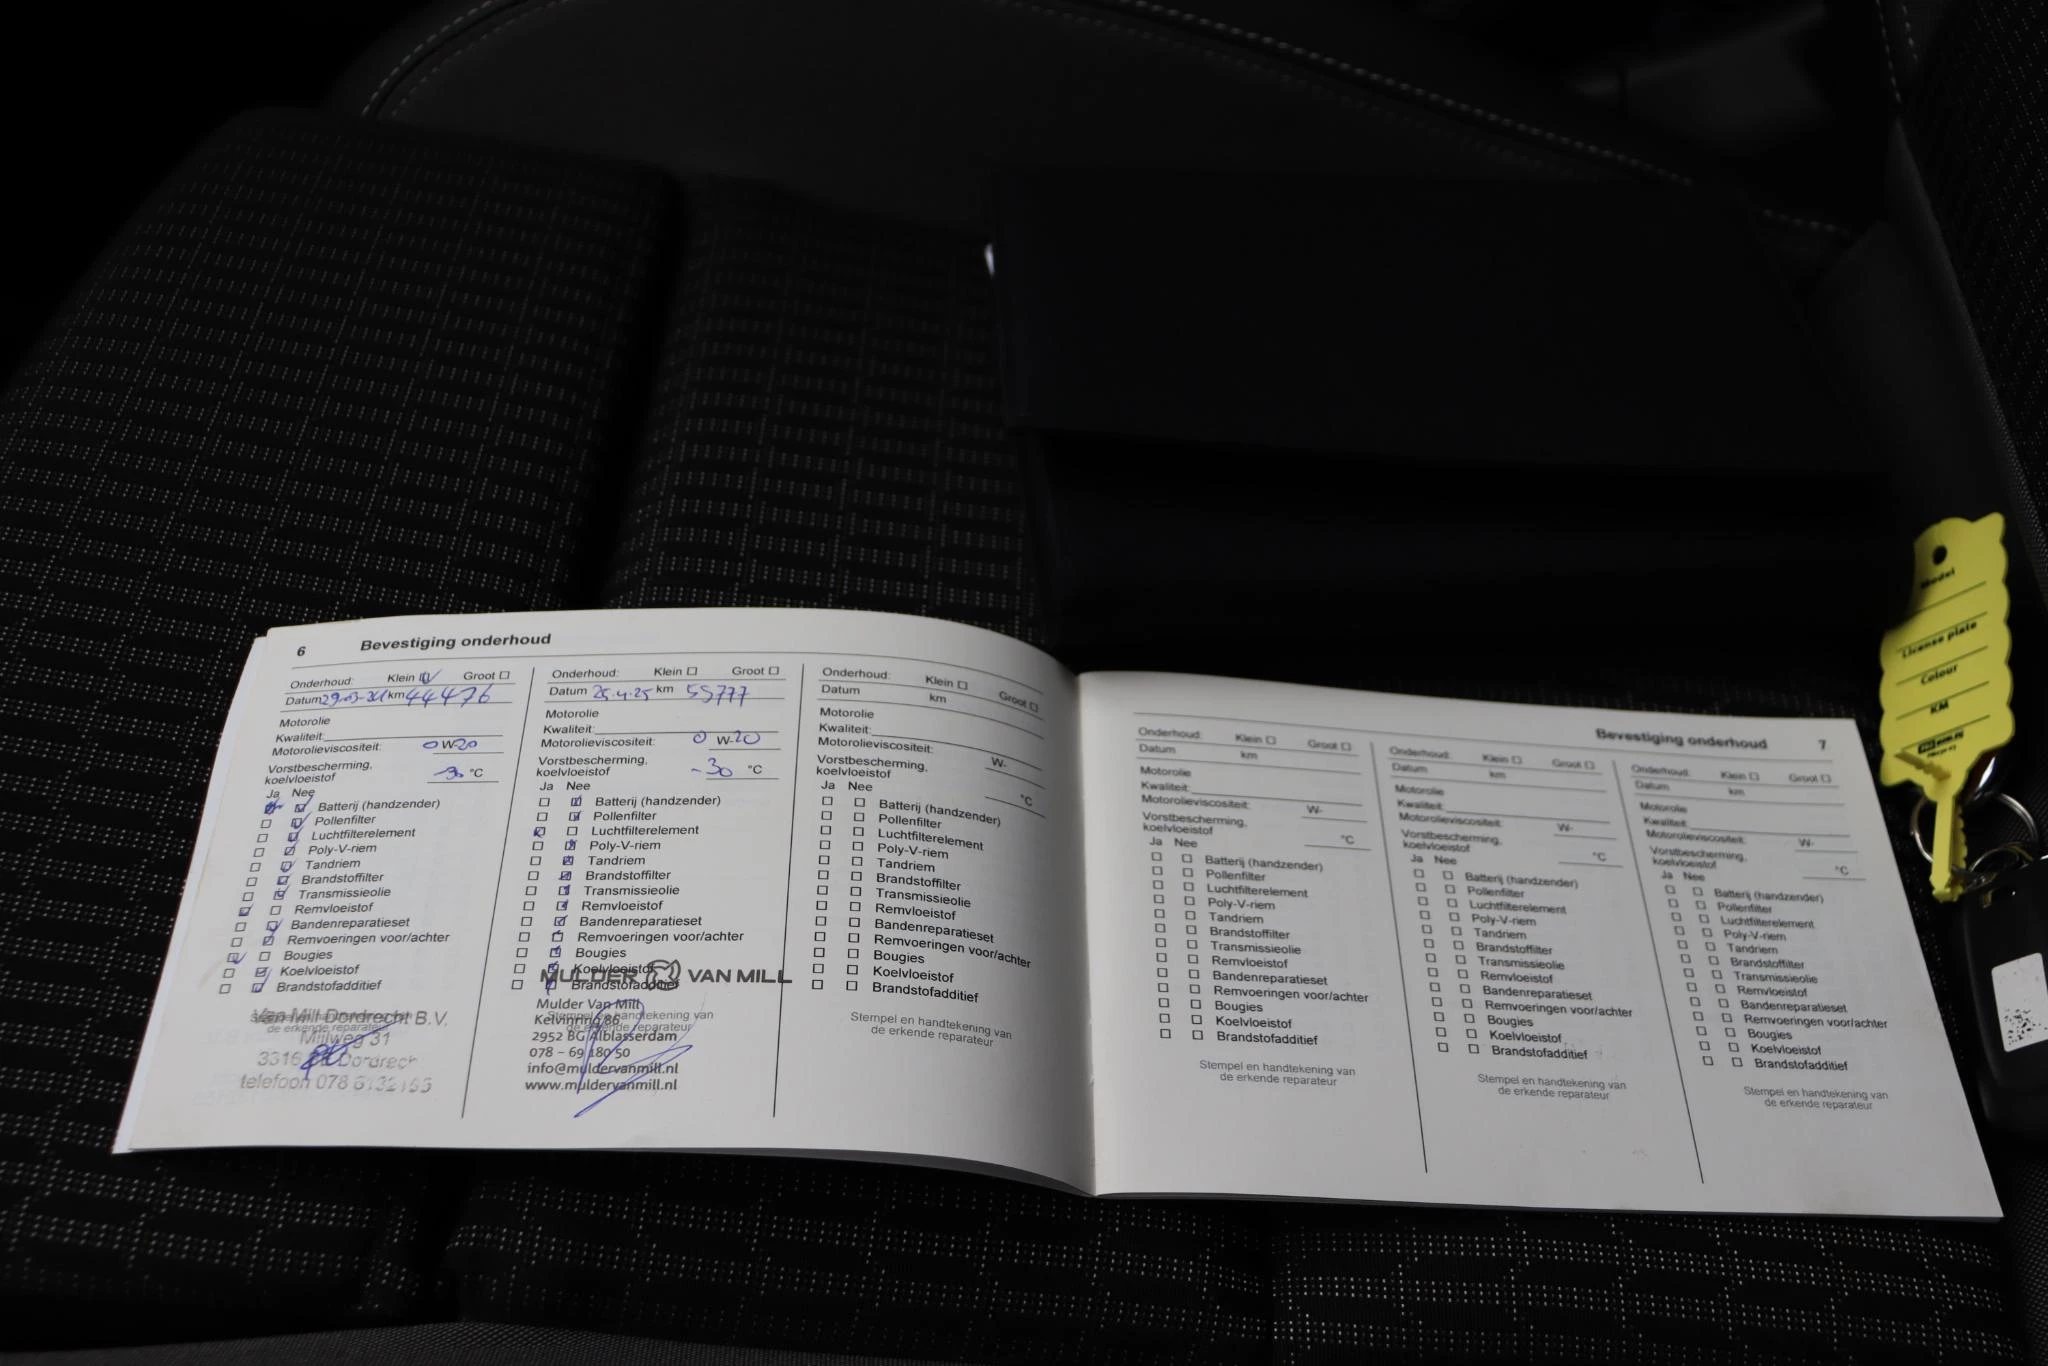 6 Bevestiging onderhoud
Onderhoud: Klein Groot
Datum 29-03-24 km 44476
Motorolie
Kwaliteit:
Motorolieviscositeit: 0 W-20
Vorstbescherming,
koelvloeistof -30 °C
Ja Nee
Batterij (handzender)
Pollenfilter
Luchtfilterelement
Poly-V-riem
Tandriem
Brandstoffilter
Transmissieolie
Remvloeistof
Bandenreparatieset
Remvoeringen voor/achter
Bougies
Koelvloeistof
Brandstofadditief
Van Mill Dordrecht B.V.
de erkende reparateur
Millweg 31
3316 Dordrech
telefoon 078
Onderhoud: Klein Groot
Datum 25.4.25 km 55777
Motorolie
Kwaliteit:
Motorolieviscositeit: 0 W-20
Vorstbescherming,
koelvloeistof -30 °C
Ja Nee
Batterij (handzender)
Pollenfilter
Luchtfilterelement
Poly-V-riem
Tandriem
Brandstoffilter
Transmissieolie
Remvloeistof
Bandenreparatieset
Remvoeringen voor/achter
Bougies
Koelvloeistof
MULDER VAN MILL
Brandstofadditief
Mulder Van Mill
Stempel en handtekening van
Kelvinring 86
de erkende reparateur
2952 BG Alblasserdam
078 - 69 180 50
info@muldervanmill.nl
www.muldervanmill.nl
Onderhoud: Klein Groot
Datum km
Motorolie
Kwaliteit:
Motorolieviscositeit: W-
Vorstbescherming,
koelvloeistof °C
Ja Nee
Batterij (handzender)
Pollenfilter
Luchtfilterelement
Poly-V-riem
Tandriem
Brandstoffilter
Transmissieolie
Remvloeistof
Bandenreparatieset
Remvoeringen voor/achter
Bougies
Koelvloeistof
Brandstofadditief
Stempel en handtekening van
de erkende reparateur
Bevestiging onderhoud 7
Onderhoud: Klein Groot
Datum km
Motorolie
Kwaliteit:
Motorolieviscositeit: W-
Vorstbescherming,
koelvloeistof °C
Ja Nee
Batterij (handzender)
Pollenfilter
Luchtfilterelement
Poly-V-riem
Tandriem
Brandstoffilter
Transmissieolie
Remvloeistof
Bandenreparatieset
Remvoeringen voor/achter
Bougies
Koelvloeistof
Brandstofadditief
Stempel en handtekening van
de erkende reparateur
Onderhoud: Klein Groot
Datum km
Motorolie
Kwaliteit:
Motorolieviscositeit: W-
Vorstbescherming,
koelvloeistof °C
Ja Nee
Batterij (handzender)
Pollenfilter
Luchtfilterelement
Poly-V-riem
Tandriem
Brandstoffilter
Transmissieolie
Remvloeistof
Bandenreparatieset
Remvoeringen voor/achter
Bougies
Koelvloeistof
Brandstofadditief
Stempel en handtekening van
de erkende reparateur
Onderhoud: Klein Groot
Datum km
Motorolie
Kwaliteit:
Motorolieviscositeit: W-
Vorstbescherming,
koelvloeistof °C
Ja Nee
Batterij (handzender)
Pollenfilter
Luchtfilterelement
Poly-V-riem
Tandriem
Brandstoffilter
Transmissieolie
Remvloeistof
Bandenreparatieset
Remvoeringen voor/achter
Bougies
Koelvloeistof
Brandstofadditief
Stempel en handtekening van
de erkende reparateur
Model
License plate
Colour
KM